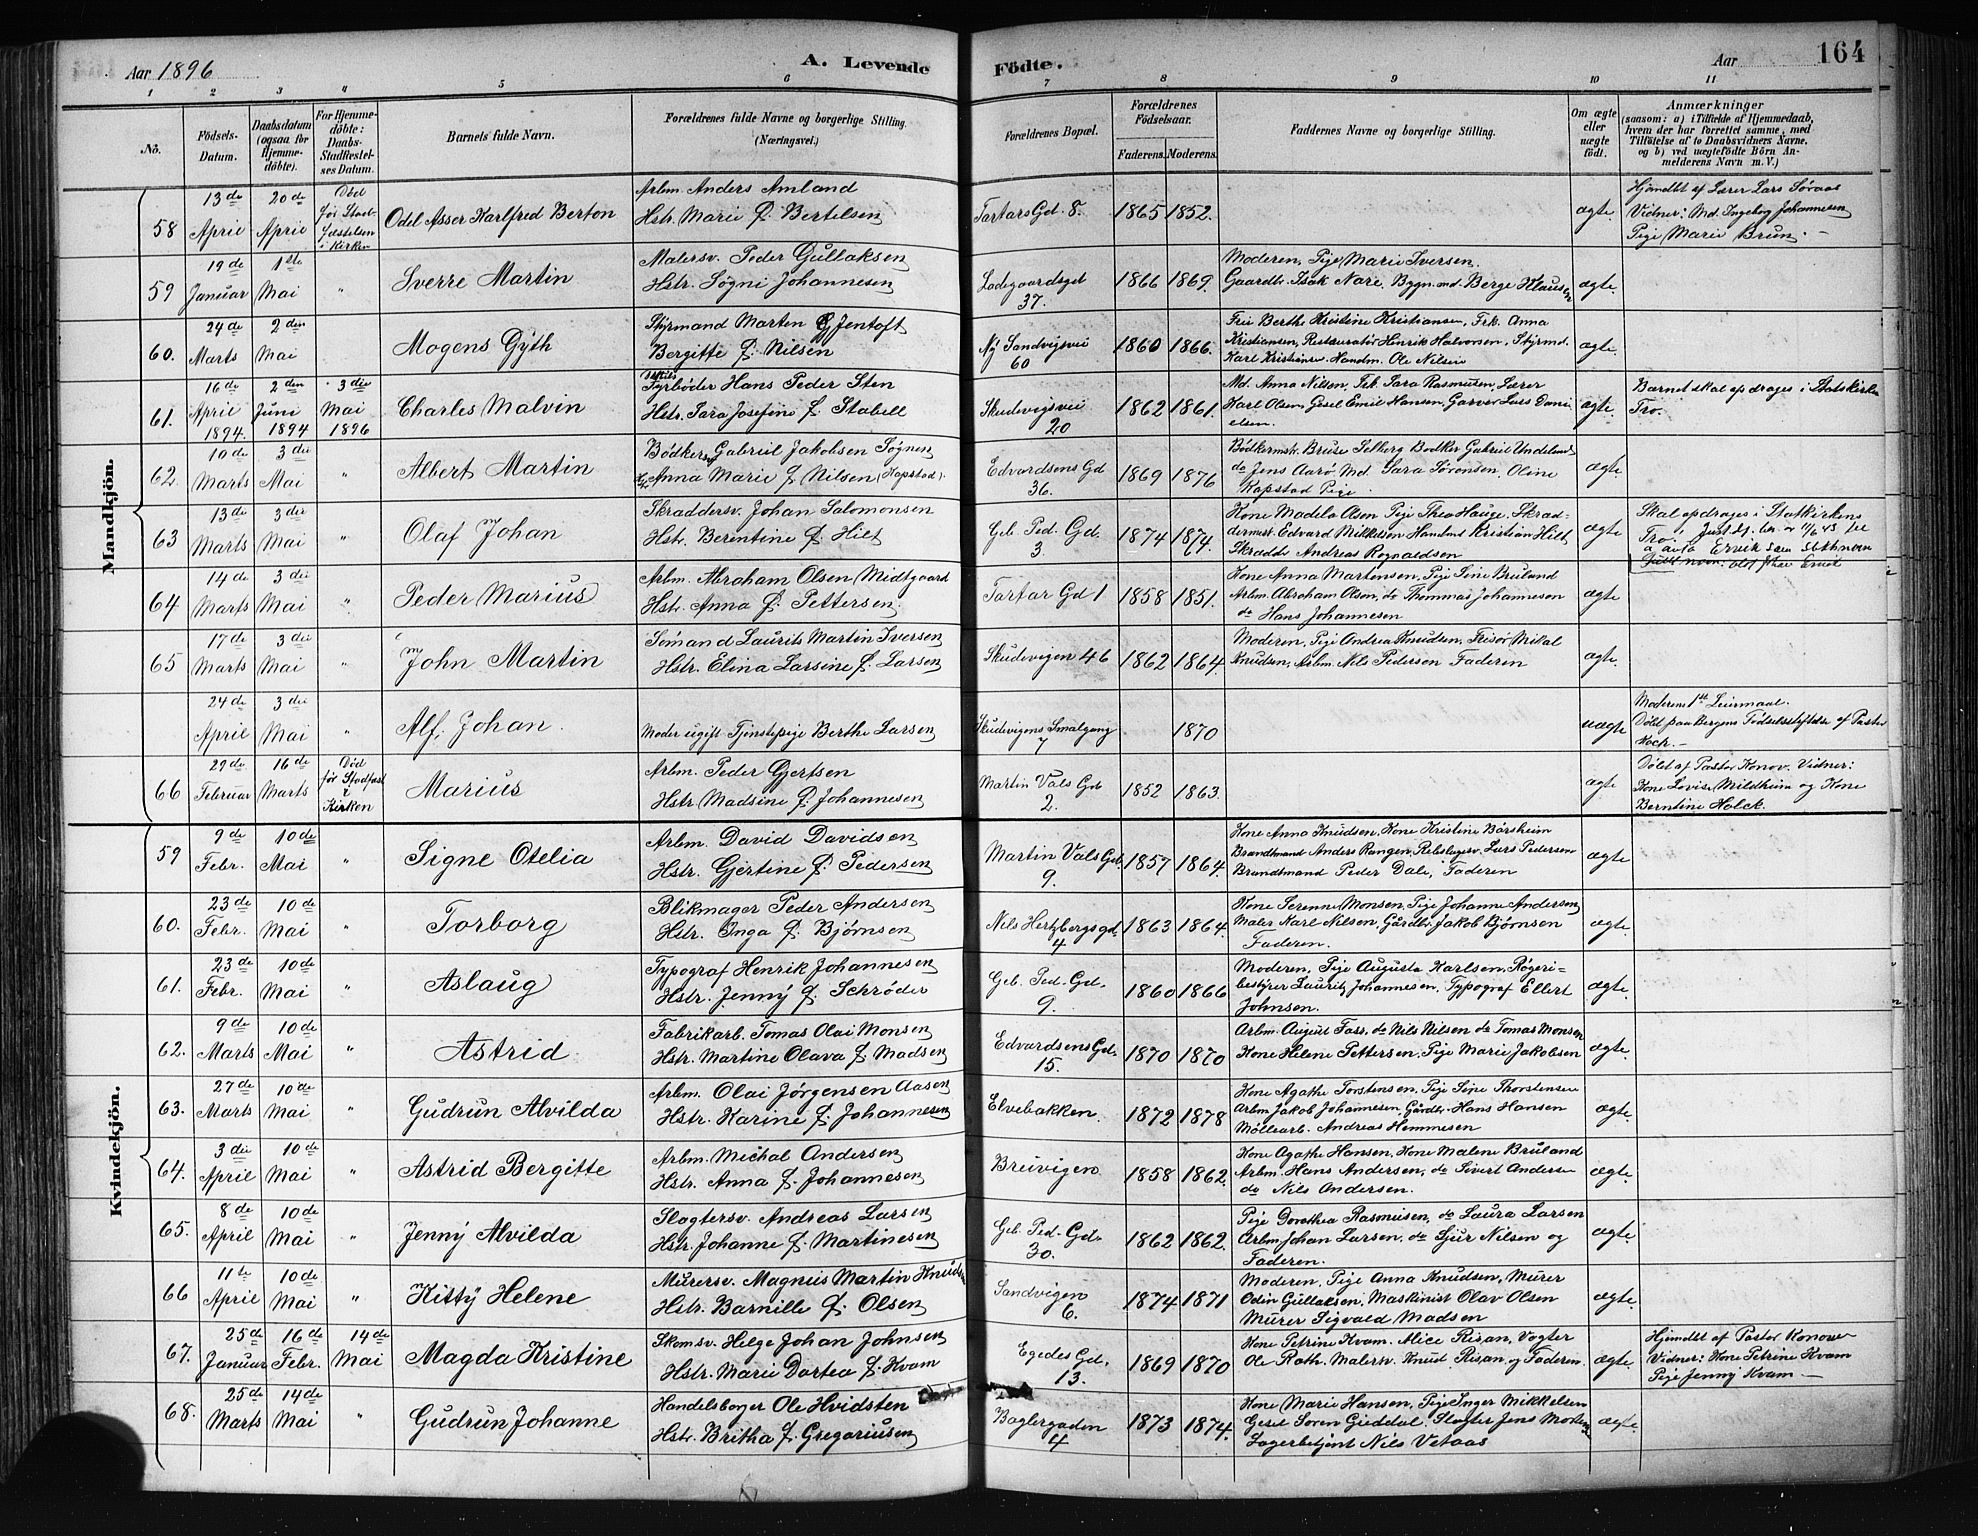 Aar 1896
A. Levende
Födte.
Aar
164
1 2 3 4 5 6 7 8 9 10 11
No.
Födsels-Datum.
Daabsdatum (ogsaa for Hjemmedöbte).
For Hjemmedöbte: Daabs-Stadfæstelses Datum.
Barnets fulde Navn.
Forældrenes fulde Navne og borgerlige Stilling. (Næringsvei.)
Forældrenes Bopæl.
Forældrenes Födselsaar.
Faderens. Moderens.
Faddernes Navne og borgerlige Stilling.
Om ægte eller uægte födt.
Anmærkninger
(saasom: a) i Tilfælde af Hjemmedaab, hvem der har forrettet samme, med Tilföielse af to Daabsvidners Navne, og b) ved uægtefödte Börn Anmelderens Navn m. V.)
Mandkjön.
58 13de April 20de April Död før Stadfæstelsen i Kirken
Odel Asser Karlfred Berton
Arbm. Anders Amland
Hstr. Marie f. Bertelsen
Tartars Gd. 8. 1865 1852. ægte
Hjemdbt af Lærer Lars Søraas
Vidner: Md. Ingeborg Johannesen
Pige Marie Brun. —
59 19de Januar 1ste Mai "
Sverre Martin
Malersv. Peder Gullaksen
Hstr. Søgni Johannesen
Ladegaardsgd 37. 1866 1869.
Moderen, Pige Marie Iversen
Gaardbr. Isak Nare, Bygn.md. Berge Klausen
ægte.
60. 24de Marts 2den Mai
Mogens Gyth
Styrmand Marten G Jentoft
Bergitte f. Nilsen
Ny Sandvigsvei 60 1860 1866.
Fru Berthe Kristine Kristiansen, Frk. Anna
Kristiansen, Restauratør Henrik Halvorsen, Styrmd.
Karl Kristiansen. Handm. Ole Nilsen
ægte.
61. 16de April 1894. 2den Juni 1894 3die Mai 1896
Charles Malvin
Fyrbøder Hans Peder Sten
Hstr. Sara Josefine f. Stabell
Skudevigsvei 20 1862 1861.
Md. Anna Nilsen, Frk. Sara Rasmusen, Lærer
Karl Olsen, Gesel Emil Hansen, Garver Lars Danielsen.
ægte.
Barnet skal opdrages i Statskirkens
Tro.
62. 10de Marts 3die Mai "
Albert Martin
Bødkersv. Gabriel Jakobsen Søgnen
Anna Marie f. Nilsen (Kapstad).
Edvardsens Gd 36. 1869 1876
Bødkermstr. Bruse Selberg Bødker Gabriel Undelund
do Jens Aarø Md. Sara Sørensen. Oline
Kapstad Pige.
ægte
63 13de Marts 3die Mai "
Olaf Johan
Skraddersv. Johan Salomonsen
Hstr. Berentine f. Hilt
Geb. Ped. Gd. 3. 1874 1874.
Kone Madela Olsen Pige Thea Hauge. Skraddermst. Edvard Mikkelsen Handm. Kristian Hilt
Skradder Andreas Rognaldsen
ægte
Skal opdrages i Statkirkens
Tro.
64 14de Marts 3die Mai "
Peder Marius
Arbm. Abraham Olsen Midtgaard
Hstr. Anna f. Pettersen.
Tartar Gd 1 1858 1851.
Kone Anna Martensen, Pige Sine Bruland
Arbm. Abraham Olsen, do Thommas Johannesen
do Hans Johannesen
ægte
65 17de Marts 3die Mai "
John Martin
Sømand Laurits Martin Iversen
Hstr. Elina Larsine f. Larsen
Skudevigen 46 1862 1864.
Moderen, Pige Andrea Knudsen, Frisør Mikal
Knudsen, Arbm. Nils Pedersen Faderen
ægte.
24de April 3die Mai "
Alf Johan
Moder ugift Tjenstepige Berthe Larsen
Skudevigens Smalgang 7 1870 uægte
Moderens 1ste Leiermaal.
Döbt paa Bergens Födselsstiftelse af Pastor
Kock. —
66 29de Februar 16de Marts Död før Stadfæst i Kirken
Marius
Arbm. Peder Gjertsen
Hstr. Madsine f. Johannesen
Martin Vals Gd 2. 1852 1863. ægte
Döbt af Pastor Konow. Vidner:
Kone Lovise Mildheim og Kone
Berntine Holck.
Kvindekjön.
59 9de Febr. 10de Mai "
Signe Otelia
Arbm. David Davidsen
Hstr. Gjertine f. Pedersen
Martin Vals Gd. 9. 1857 1864.
Kone Anna Knudsen, Kone Kristine Børsheim
Brandtmand Anders Rangen, Rebslagersv. Lars Pedersen
Brandtmand Peder Dale, Faderen
ægte
60. 23de Febr. 10de Mai "
Torborg
Blikmager Peder Andersen
Hstr. Inga f. Bjørnsen
Nils Hertzbergs gd. 4 1863 1864.
Kone Serenne Monsen, Pige Johanne Andersen
Maler Karl Nilsen, Gårdbr. Jakob Bjørnsen
Faderen.
ægte.
61. 23de Febr. 10de Mai "
Aslaug
Typograf Henrik Johannesen
Hstr. Jenny f. Schrøder
Geb. Ped. Gd. 9. 1860 1866
Moderen, Pige Augusta Karlsen, Røgeribestyrer Lauritz Johannesen, Typograf Ellert
Johnsen.
ægte.
62. 9de Marts 10de Mai "
Astrid
Fabrikarb. Tomas Olai Monsen
Hstr. Martine Olava f. Madsen
Edvardsens Gd. 15. 1870 1870
Arbm. August Fass, do Nils Nilsen do Tomas Monsen
Kone Helene Pettersen, Pige Marie Jakobsen
ægte.
63. 27de Marts 10de Mai "
Gudrun Alvilda
Arbm. Olai Jørgensen Aasen
Hstr. Karine f. Johannesen
Elvebakken. 1872 1878
Kone Agathe Torstensen, Pige Sine Thorstensen
Arbm Jakob Johannesen, Gårdbr. Hans Hansen
Møllearb. Andreas Hemmesen
ægte.
64. 3die April 10de Mai "
Astrid Bergitte
Arbm. Michal Andersen
Hstr. Anna f. Johannesen
Breivigen 1858 1862.
Kone Agathe Hansen, Kone Malene Bruland
Arbm. Hans Andersen, do Sivert Andersen
do Nils Andersen.
ægte.
65. 8de April 10de Mai "
Jenny Alvilda
Slagtersv. Andreas Larsen
Hstr. Johanne f. Martinesen
Geb. Ped. Gd. 30. 1862 1862.
Pige Dorothea Rasmusen, do Laura Larsen
Arbm Johan Larsen, do Sjur Nilsen og
Faderen.
ægte.
66 11te April 10de Mai "
Kitty Helene
Murersv. Magnus Martin Knudsen
Hstr. Barnille f. Olsen
Sandvigen 6. 1874 1871
Moderen, Pige Anna Knudsen, Murer
Odin Gullaksen, Maskinist Olav Olsen
Murer Sigvald Madsen
ægte.
67. 25de Januar 16de Febr. 14de Mai
Magda Kristine
Skomsv. Helge Johan Johnsen
Hstr. Marie Dortea f. Kvam
Egedes Gd. 13. 1869 1870
Kone Petrine Kvam. Alice Risan, Vogter
Ole Rath. Malersv. Knud Risan og Faderen.
ægte.
Hjemdbt af Pastor Konow
Vidner: Kone Petrine Kvam
Pige Jenny Kvam —
68. 25de Marts 14de Mai "
Gudrun Johanne
Handelsborger Ole Hvidsten
Hstr. Britha f. Gregoriussen
Baglergaden 4 1873 1874.
Kone Marie Hansen, Pige Inger Mikkelsen
Gesel Soren Guddal, Slagter Jens Mortensen
Lagerbetjent Nils Vetaas
ægte.